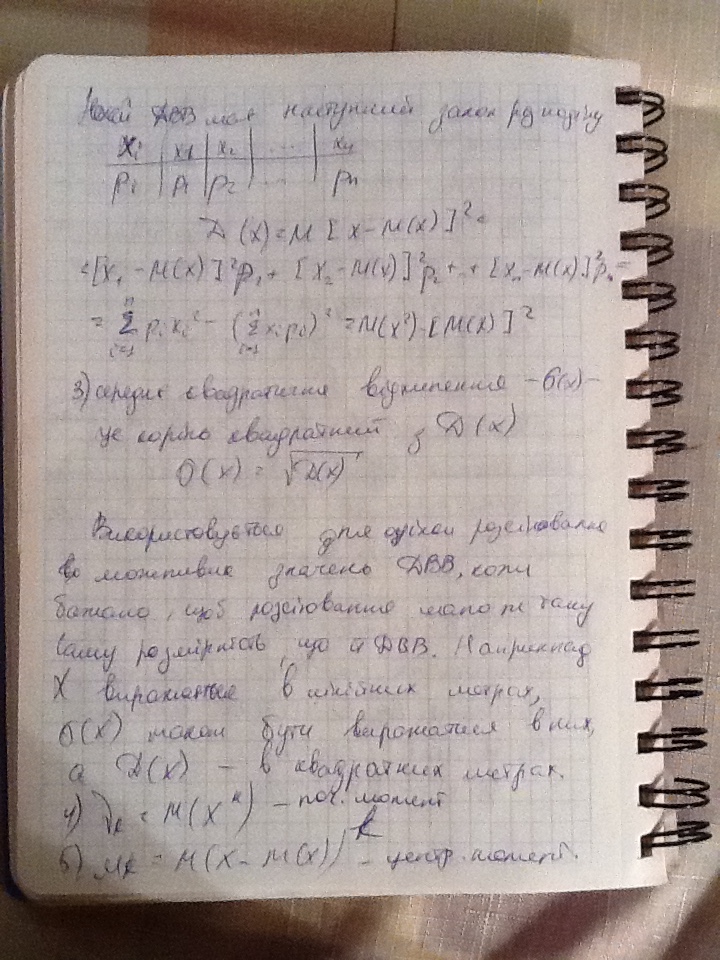 Нехай ДВВ має наступний закон розподілу
xi | x1 | x2 | ... | xn
Pi | P1 | P2 | ... | Pn
D(x) = M[x - M(x)]² =
= [x₁ - M(x)]² p₁ + [x₂ - M(x)]² p₂ + + [xₙ - M(x)]² pₙ =
= Σⁿᵢ₌₁ pᵢ xᵢ² - (Σⁿᵢ₌₁ xᵢ pᵢ)² = M(x²) - [M(x)]²
3) середнє квадратичне відхилення - σ(x) -
це корінь квадратний з D(x)
σ(x) = √D(x)
Використовується для оцінки розсіювання
можливих значень ДВВ, коли
бажано, щоб розсіювання мало ту саму
розмірність, що й ДВВ. Наприклад
X виражається в метрах,
σ(x) може бути виражатися в них,
а D(x) - в квадратних метрах.
4) νₖ = M(Xᵏ) - поч. момент
5) μₖ = M(X - M(x))ᵏ - центр. момент.